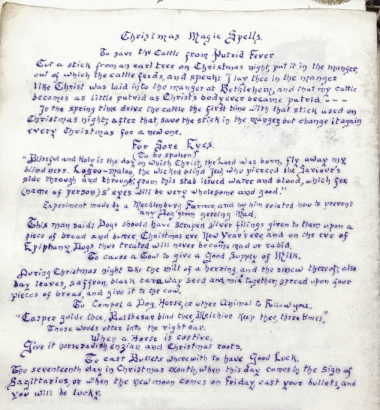 Christmas Magic Spells.
To save the Cattle from Putrid Fever
Cut a stick from an earl tree on Christmas night, put it in the manger,
out of which the cattle feeds, and speak: I lay thee in the manger
like Christ was laid into the manger at Bethlehem, and that my cattle
becomes as little putrid as Christ's body ever became putrid - - -
In the spring time drive the cattle the first time with that stick used on
Christmas night, after that, save the stick in the manger but change it again
every Christmas for a new one.
For Sore Eyes.
To be spoken!
"Blissful and Holy is the day on which Christ, the Lord was born, fly away my
blindness. the wicked blind Jew who pierced the Saviour's
side through and through, from this stab issued water and blood, which for
(name of person)s' eyes will be very wholesome and good."
Experiment made by a Mecklinburg Farmer, and by him related how to prevent
any Dog from getting Mad.
This man said: Dogs should have scrapen Silver filings given to them upon a
piece of bread and butter, Christmas eve New Year's eve, and on the eve of
Epiphany Dogs thus treated will never become mad or rabid.
To cause a Cow to give a Good Supply of Milk.
During Christmas night take the milt of a herring, and the thereof; also
bay leaves, saffron, black caraway seed and mix together, spread upon four
pieces of bread, and give it to the cow.
To Compel a Dog, Horse, or other Animal to Follow you.
"Casper guide thee, Balthasar bind thee, Melchior keep thee, three times,"
Those words utter into the right ear.
When a Horse is costive,
Give it horseradish enzian and Christmas roots,
To cast Bullets wherewith to have Good Luck,
The seventeenth day in Christmas month, when this day comes in the sign of
Sagittarius, or when the new moon comes on Friday, cast your bullets, and
you will be lucky.